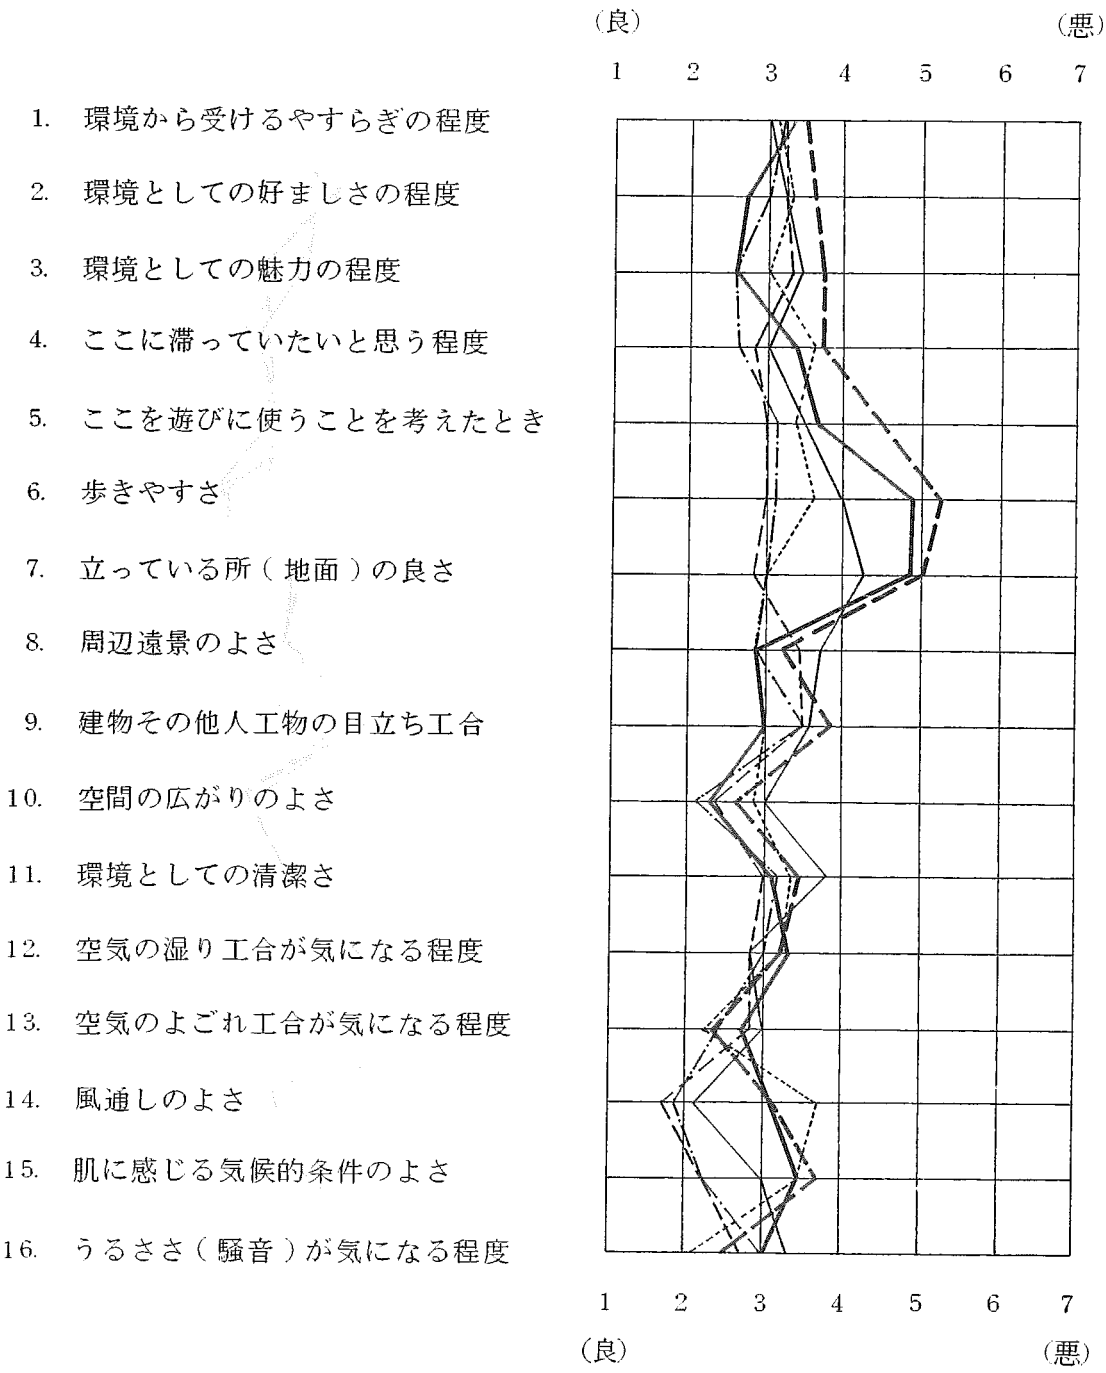 (良) (悪)
1 2 3 4 5 6 7
1. 環境から受けるやすらぎの程度
2. 環境としての好ましさの程度
3. 環境としての魅力の程度
4. ここに滞っていたいと思う程度
5. ここを遊びに使うことを考えたとき
6. 歩きやすさ
7. 立っている所(地面)の良さ
8. 周辺遠景のよさ
9. 建物その他人工物の目立ち工合
10. 空間の広がりのよさ
11. 環境としての清潔さ
12. 空気の湿り工合が気になる程度
13. 空気のよごれ工合が気になる程度
14. 風通しのよさ
15. 肌に感じる気候的条件のよさ
16. うるささ(騒音)が気になる程度
1 2 3 4 5 6 7
(良) (悪)